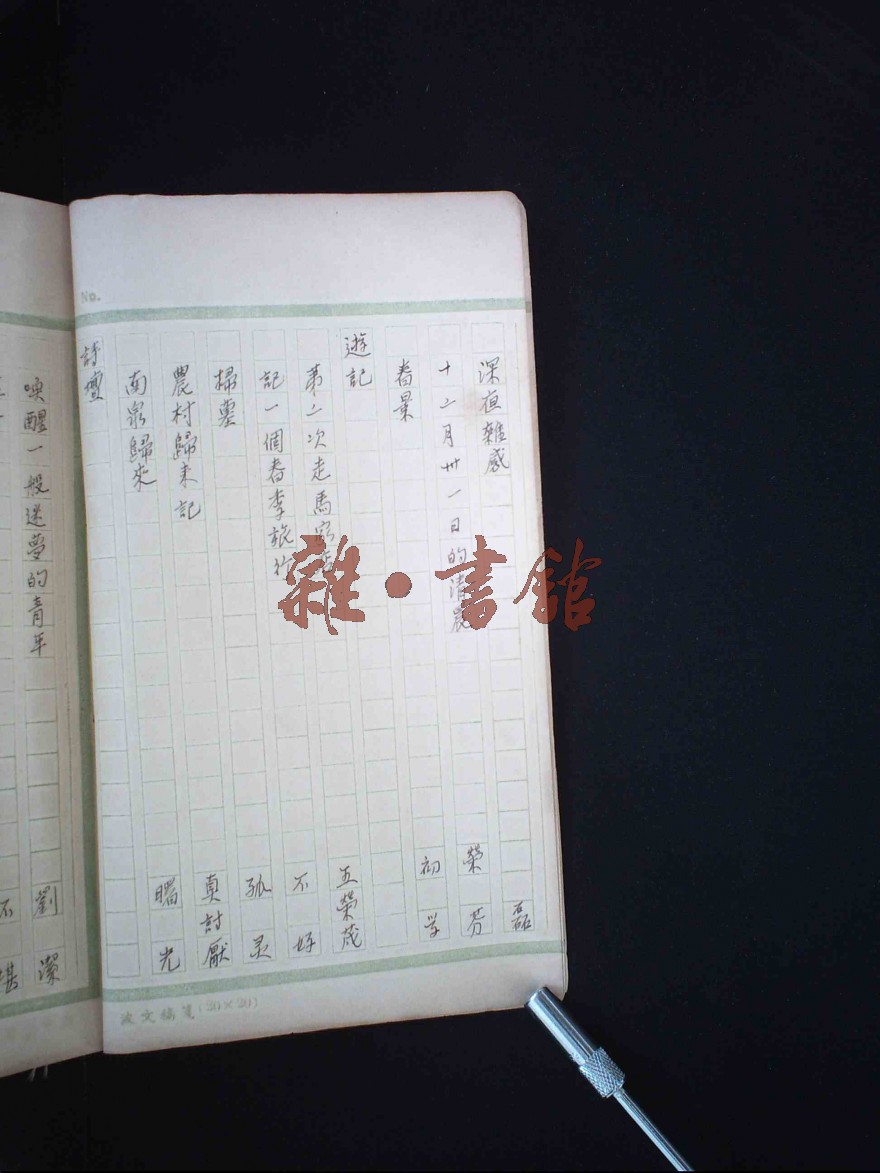 No.
深夜雜感 磊
十二月卅一日的清晨 榮芳
春景 初学
遊記
第二次走馬 五榮茂
記一個春季旅行 不好
掃墓 孤灵
農村歸来記 真討厭
南泉歸來 曙光
詩壇
喚醒一般迷夢的青年 劉潔
不堪
文稿箋(20×20)
雜·書館